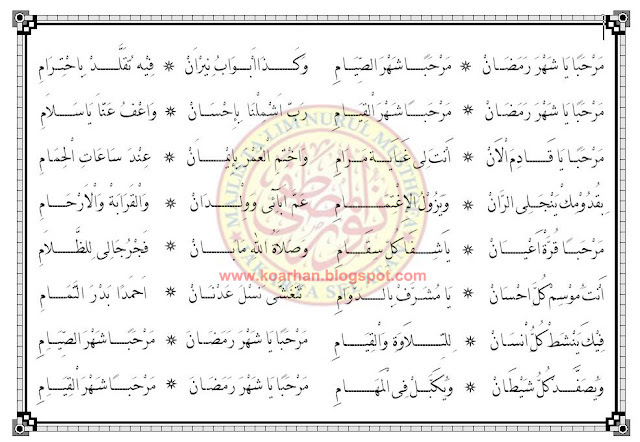 مَرْحَبًا يَا شَهْرَ رَمَضَانْ * مَرْحَبًا شَهْرَ الصِّيَامِ
مَرْحَبًا يَا شَهْرَ رَمَضَانْ * مَرْحَبًا شَهْرَ الْقِيَامِ
مَرْحَبًا يَا قَادِمَ الْآنْ * أَنْتَ لِى غَايَةْ مَرَامِ
بِقُدُوْمِكْ يَنْجَلِى الرَّانْ * وَيَزُوْلُ الْاِغْتِمَامِ
مَرْحَبًا قُرَّةْ اَعْيَانْ * يَا شِفَا كُلِّ سَقَامِ
أَنْتَ مُوْسِمْ كُلِّ احْسَانْ * يَا مُشَرَّفْ بِالدَّوَامِ
فِيْكَ يَنْشَطْ كُلُّ اِنْسَانْ * لِلتِّلَاوَةْ وَالْقِيَامِ
وَيُصَفَّدْ كُلُّ شَيْطَانْ * وَيُكَبَّلْ فِى الْمَهَامِ
وَكَذَا اَبْوَابُ نِيْرَانْ * فِيْهِ تُقَلَّدْ بِاحْتِرَامِ
رَبِّ اشْمَلْنَا بِاِحْسَانْ * وَاعْفُ عَنَّا يَا سَلَامِ
وَاخْتِمِ الْعُمْرَ بِاِيْمَانْ * عِنْدَ سَاعَاتِ الْحِمَامِ
عَمَّ اٰبَآئِى وَوِلْدَانْ * وَالْقَرَابَةْ وَالْاَرْحَامِ
وَصَلَاةُ اللهِ مَا بَانْ * فَجْرُ جَالِى لِلظَّلَامِ
تَغْشٰى نَسْلَ عَدْنَانْ * اَحْمَدَا بَدْرَ التَّمَامِ
مَرْحَبًا يَا شَهْرَ رَمَضَانْ * مَرْحَبًا شَهْرَ الصِّيَامِ
مَرْحَبًا يَا شَهْرَ رَمَضَانْ * مَرْحَبًا شَهْرَ الْقِيَامِ
www.koarhan.blogspot.com